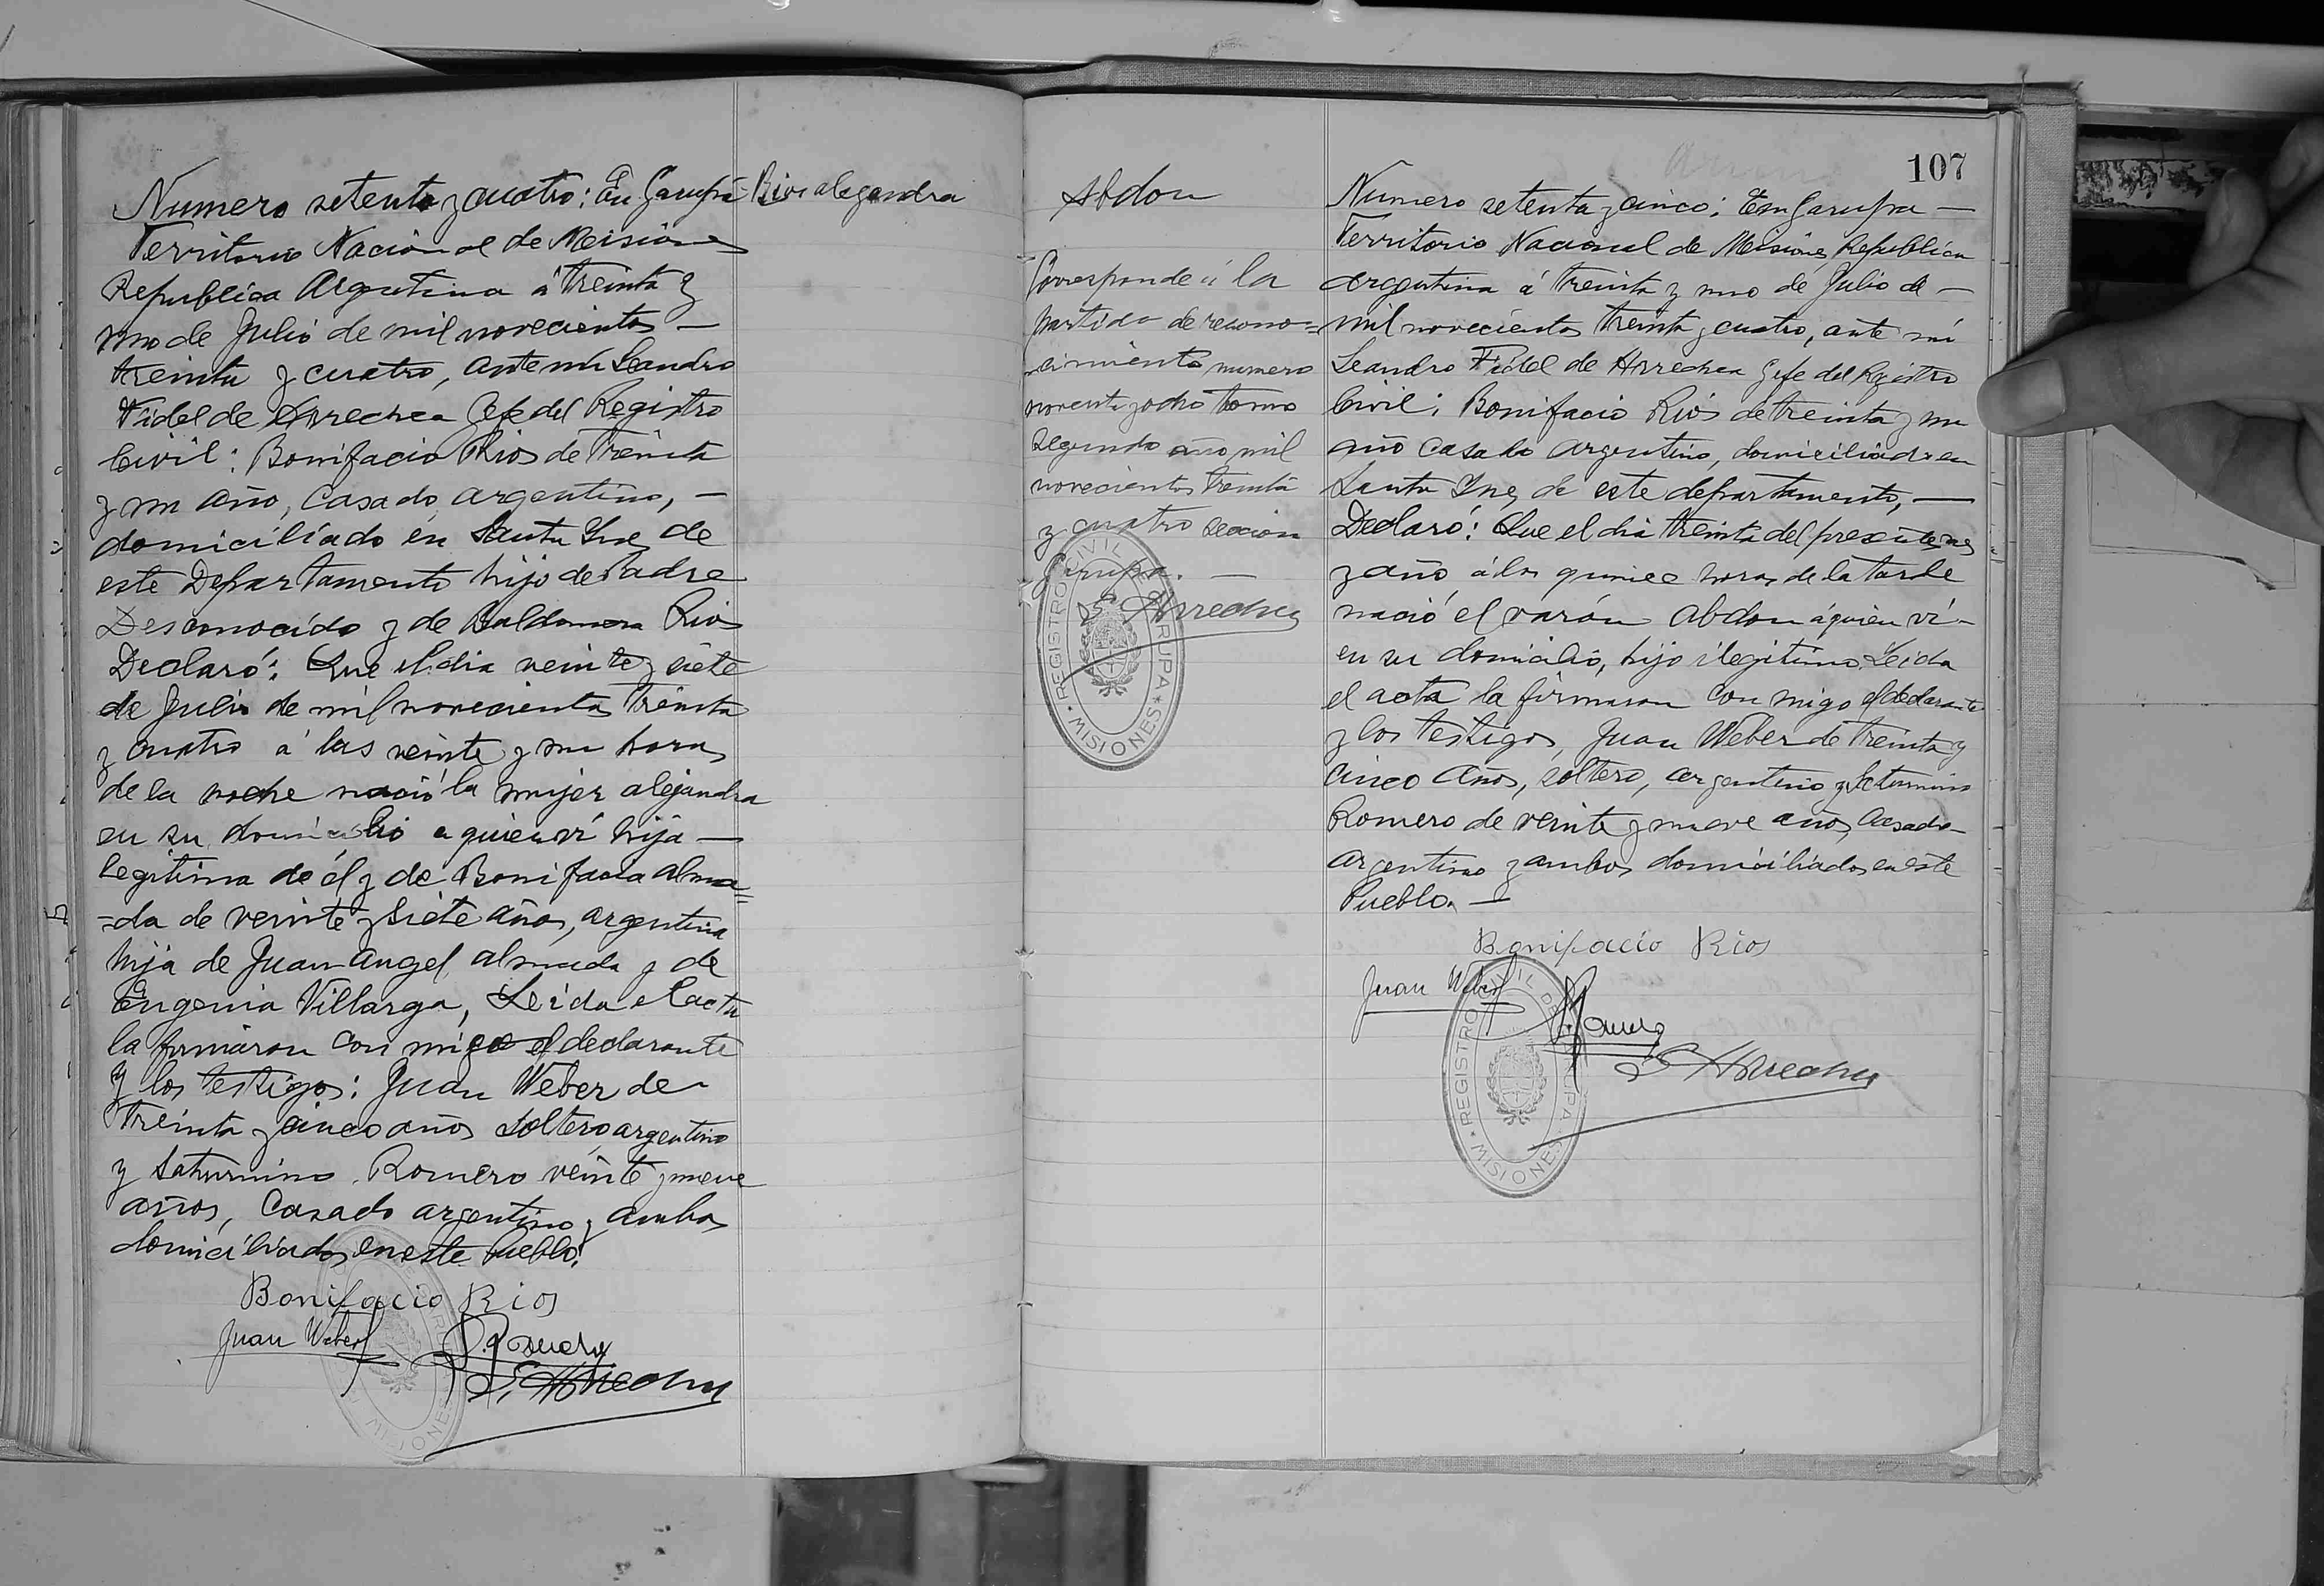 Numero setenta y cuatro: En Garupá
Territorio Nacional de Misiones
Republica Argentina á treinta y
uno de Julio de mil novecientos —
treinta y cuatro, ante mi Leandro
Fidel de Arrechea Gefe del Registro
Civil: Bonifacio Rios de treinta
y un año, casado, argentino, —
domiciliado en Santa Ines de
este Departamento hijo de Padre
Desconocido y de Baldomera Rios
Declaró: Que el dia veinte y siete
de Julio de mil novecientos treinta
y cuatro á las veinte y una horas
de la noche nació la mujer alejandra
en su domicilio a quien ví hija —
legitima de él y de Bonifacia alma=
=da de veinte y siete años, argentina
hija de Juan Angel almada y de
Eugenia Villarga, Leida el acta
la firmaron con migo el declarante
y los testigos: Juan Weber de
treinta y cinco años soltero argentino
y Saturnino Romero veinte y nueve
años, Casado argentino y ambos
domiciliados en este Pueblo.
Bonifacio Rios
Juan Weber
Rios alegandra
Abdon
Corresponde á la
partida de recono=
cimiento numero
noventa y ocho tomo
Segundo año mil
novecientos treinta
y cuatro seccion
Garupa. —
L F Arrechea
REGISTRO CIVIL GARUPA
MISIONES
107
Numero setenta y cinco: En Garupa —
Territorio Nacional de Misiones, Republica
Argentina á treinta y uno de Julio de —
mil novecientos treinta y cuatro, ante mi
Leandro Fidel de Arrechea Gefe del Registro
Civil: Bonifacio Rios de treinta y un
año casado argentino, domiciliado en
Santa Ines de este departamento, —
Declaró: Que el dia treinta del presente mes
y año á las quince horas de la tarde
nació el varón Abdon á quien ví —
en su domicilio, hijo ilegitimo. Leida
el acta la firmaron con migo el declarante
y los testigos, Juan Weber de treinta y
cinco años, soltero, argentino y Saturnino
Romero de veinte y nueve años, casado —
argentino y ambos domiciliados en este
Pueblo. —
Bonifacio Rios
Juan Weber
Romero
L F Arrechea
REGISTRO CIVIL DE GARUPA
MISIONES